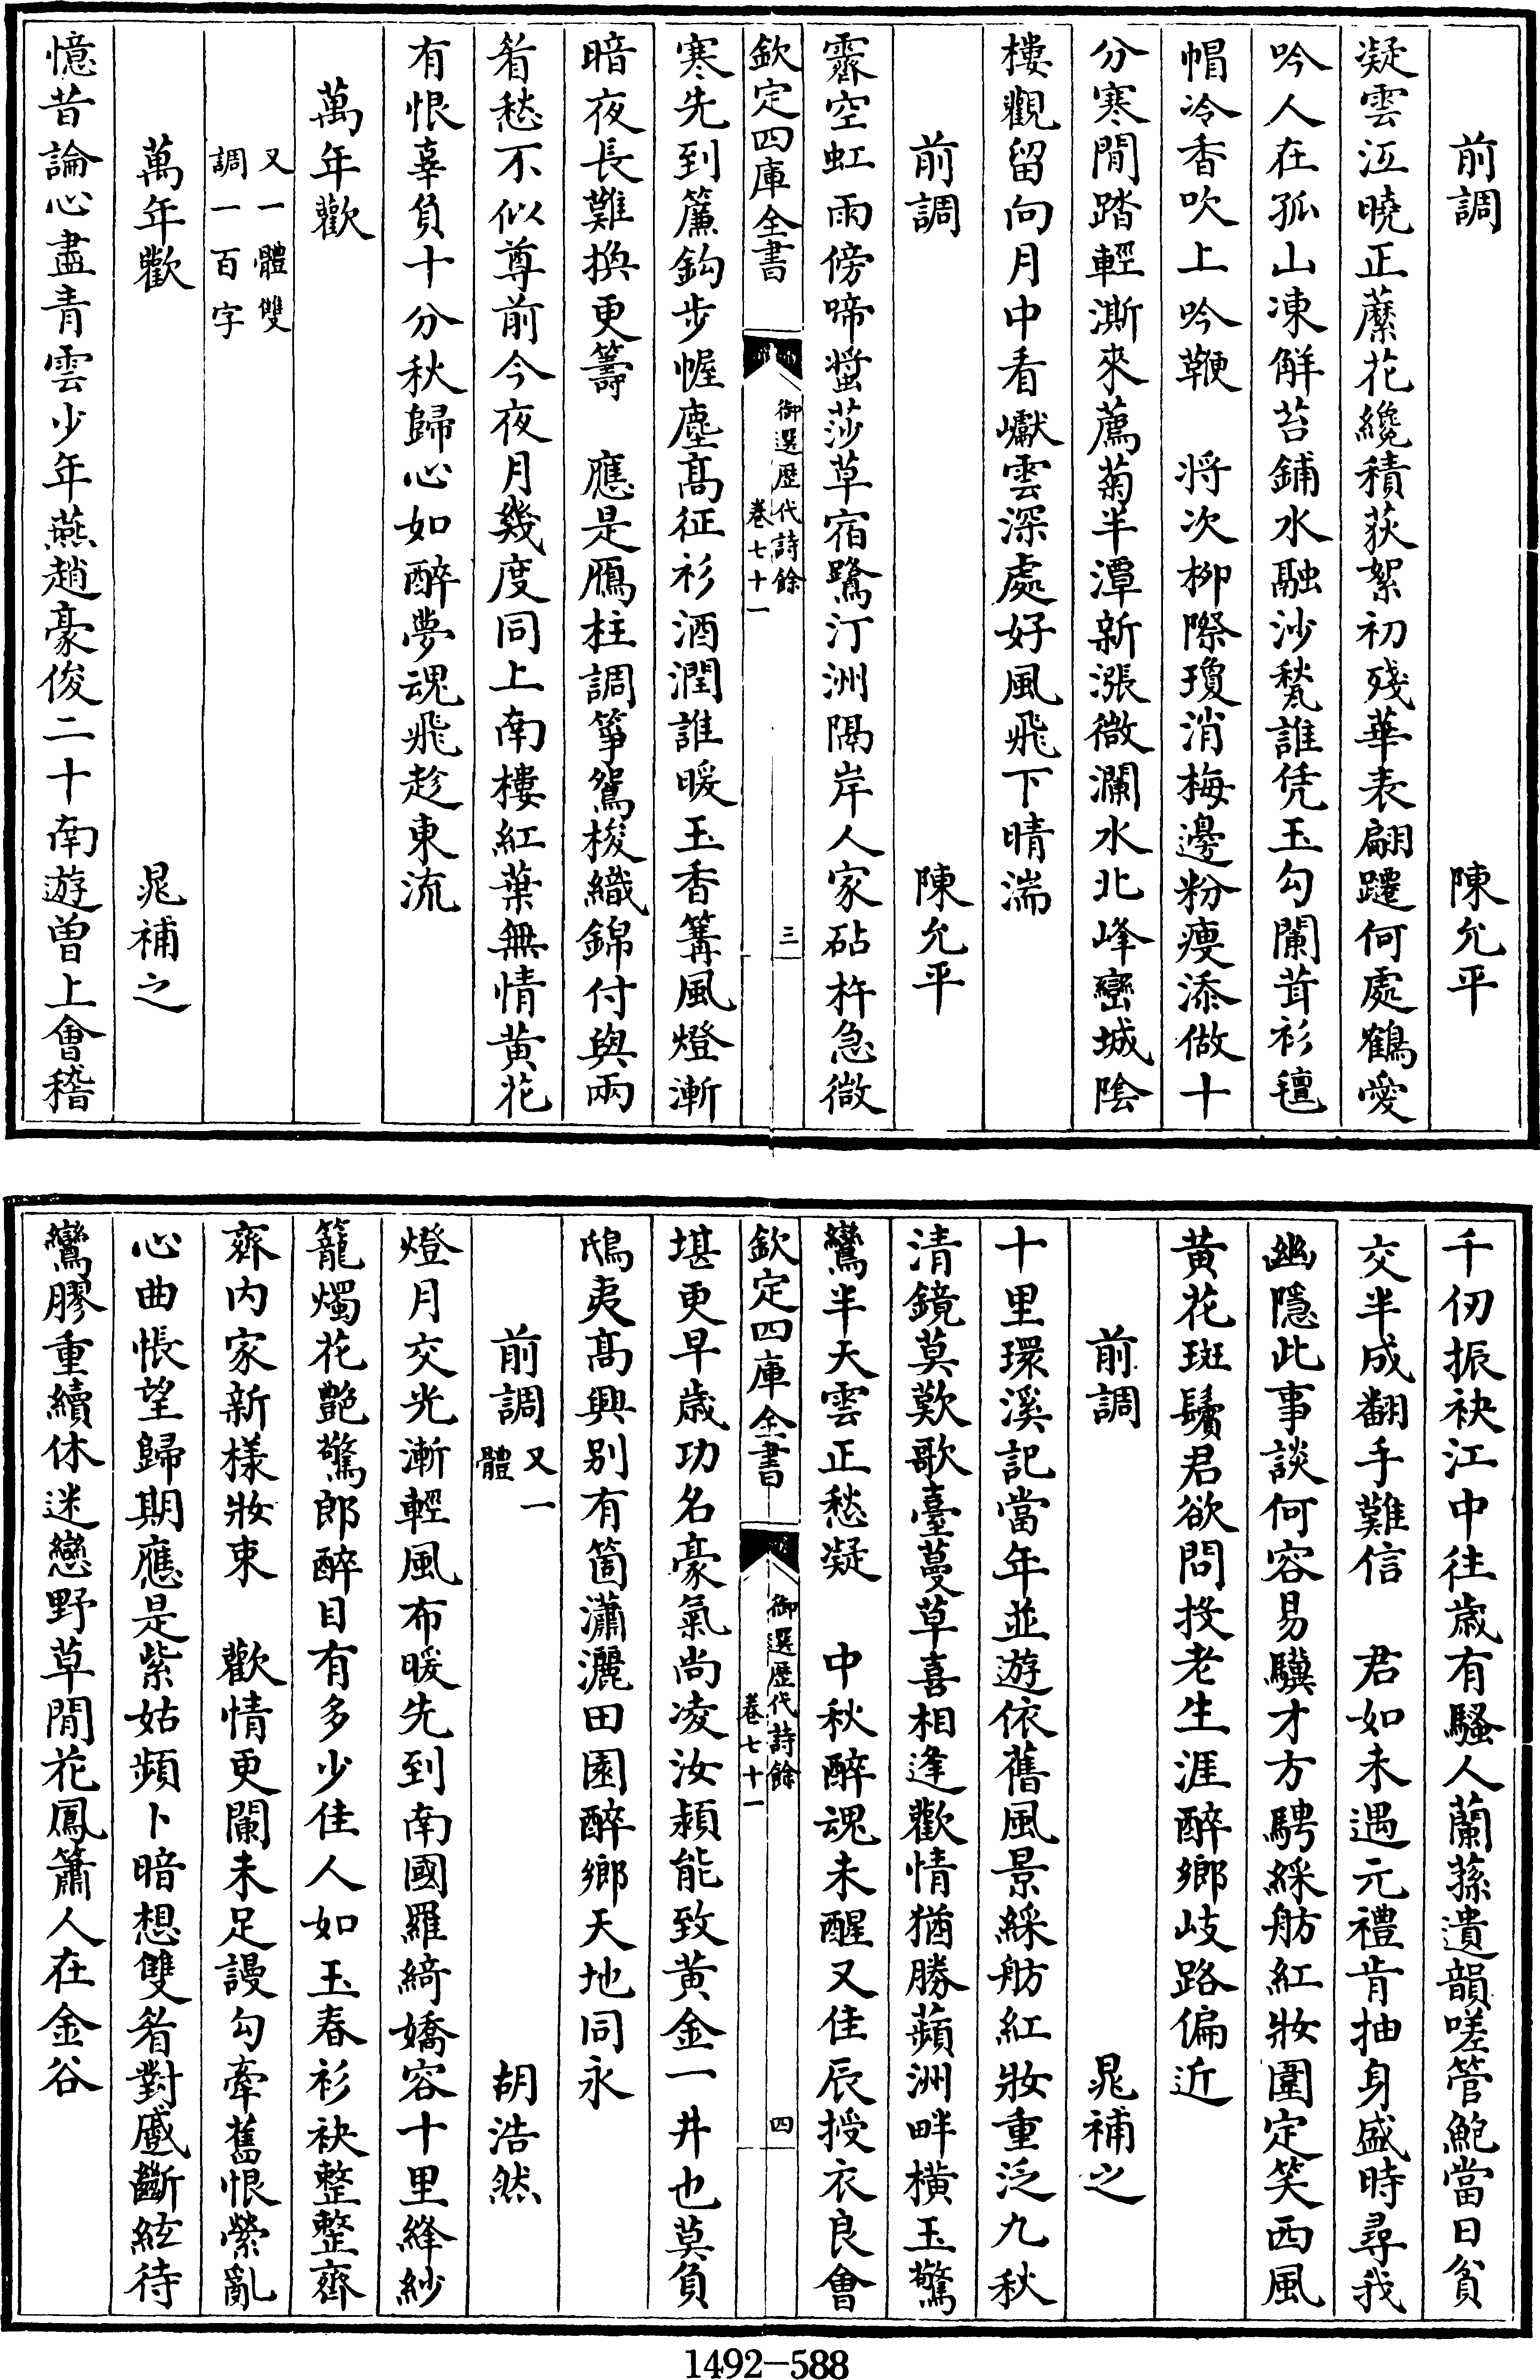 前調　陳允平
凝雲沍曉正蘪花纔積荻絮初殘華表翩躚何處鶴愛
吟人在孤山凍解苔鋪水融沙甃誰凭玉勾闌茸衫氊
帽冷香吹上吟鞭　將次柳際瓊消梅邊粉瘦添做十
分寒閒踏輕澌來薦菊半潭新漲微瀾水北峰巒城陰
樓觀留向月中看巘雲深處好風飛下晴湍
前調　陳允平
霽空虹雨傍啼螿莎草宿鷺汀洲隔岸人家砧杵急微
寒先到簾鈎步幄塵高征衫酒潤誰暖玉香篝風燈漸
暗夜長難換更籌　應是鴈柱調箏鴛梭織錦付與兩
眉愁不似尊前今夜月幾度同上南樓紅葉無情黃花
有恨辜負十分秋歸心如醉夢魂飛趁東流
萬年歡
又一體雙
調一百字
萬年歡　晁補之
憶昔論心盡青雲少年燕趙豪俊二十南遊曾上會稽
欽定四庫全書
御選歷代詩餘
卷七十一
三
千仞振袂江中往歲有騷人蘭蓀遺韻嗟管鮑當日貧
交半成翻手難信　君如未遇元禮肯抽身盛時尋我
幽隱此事談何容易驥才方騁綵舫紅妝圍定笑西風
黃花斑鬢君欲問投老生涯醉鄉岐路偏近
前調　晁補之
十里環溪記當年並遊依舊風景綵舫紅妝重泛九秋
清鏡莫歎歌臺蔓草喜相逢歡情猶勝蘋洲畔橫玉驚
鸞半天雲正愁凝　中秋醉魂未醒又佳辰授衣良會
堪更早歲功名豪氣尚凌汝潁能致黃金一井也莫負
鴟夷高興別有箇瀟灑田園醉鄉天地同永
前調又一體　胡浩然
燈月交光漸輕風布暖先到南國羅綺嬌容十里絳紗
籠燭花艷驚郎醉目有多少佳人如玉春衫袂整整齊
齊內家新樣妝束　歡情更闌未足謾勾牽舊恨縈亂
心曲悵望歸期應是紫姑頻卜暗想雙眉對蹙斷絃待
鸞膠重續休迷戀野草閒花鳳簫人在金谷
欽定四庫全書
御選歷代詩餘
卷七十一
四
1492-588